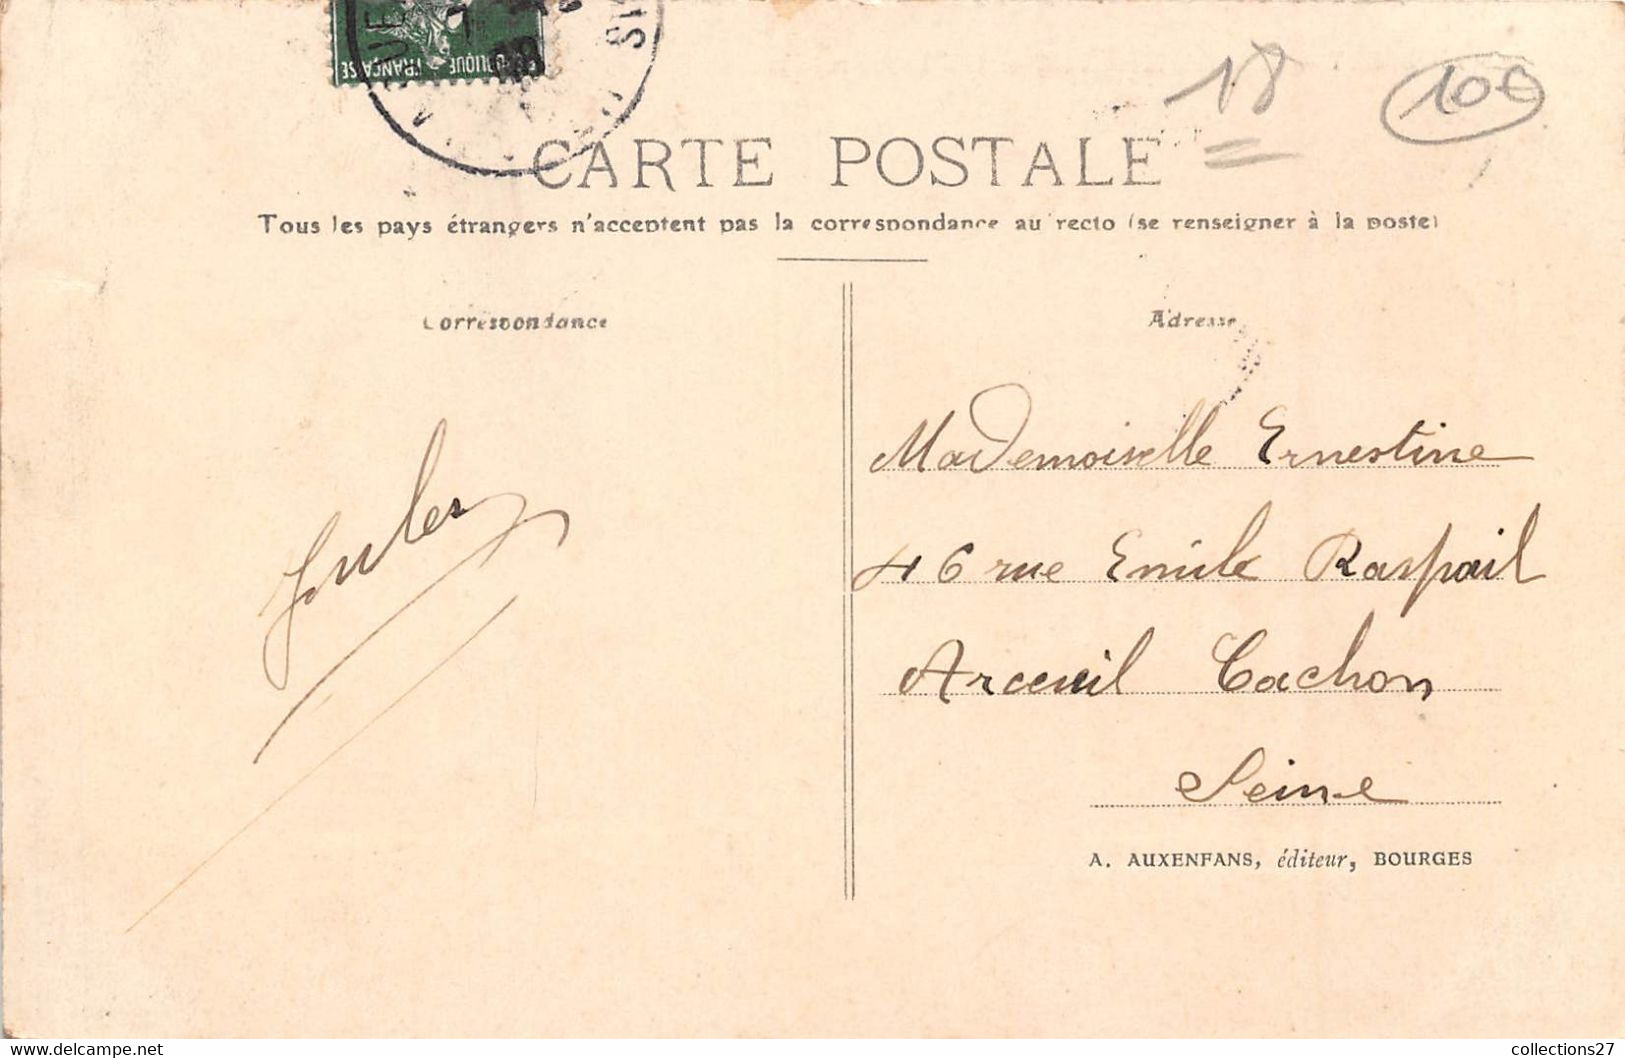 RÉPUBLIQUE FRANÇAISE
18
10€
CARTE POSTALE
Tous les pays étrangers n'acceptent pas la correspondance au recto (se renseigner à la poste)
Correspondance
Adresse
Jules
Mademoiselle Ernestine
46 rue Emile Raspail
Arceuil Cachon
Seine
A. AUXENFANS, éditeur, BOURGES
delcampe.net
collections27